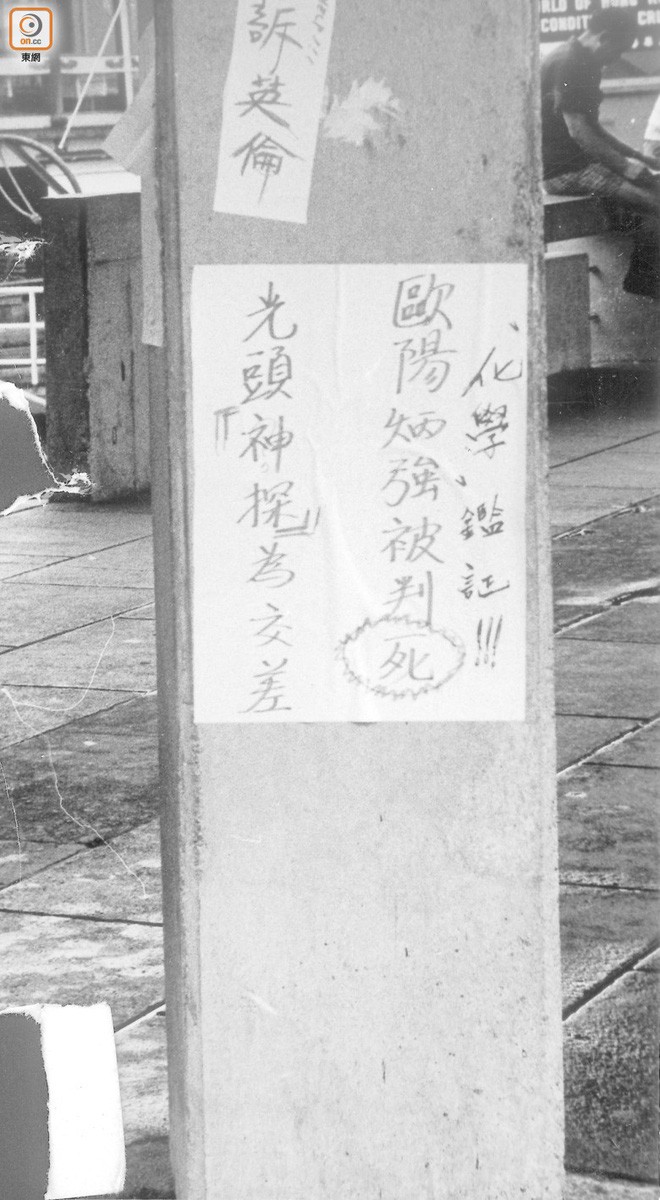 on.cc
東網
訴英倫
、化學、鑑証!!!
歐陽炳強被判死
光頭『神探』為交差